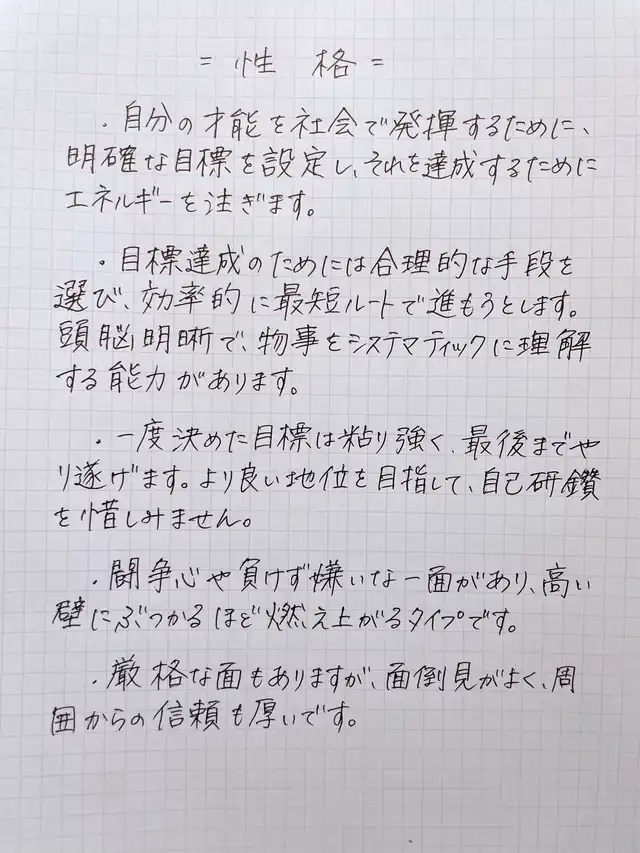 = 性 格 =
・自分の才能を社会で発揮するために、
明確な目標を設定し、それを達成するために
エネルギーを注ぎます。
・目標達成のためには合理的な手段を
選び、効率的に最短ルートで進もうとします。
頭脳明晰で、物事をシステマティックに理解
する能力があります。
・一度決めた目標は粘り強く、最後までや
り遂げます。より良い地位を目指して、自己研鑽
を惜しみません。
・闘争心や負けず嫌いな一面があり、高い
壁にぶつかるほど燃え上がるタイプです。
・厳格な面もありますが、面倒見がよく、周
囲からの信頼も厚いです。